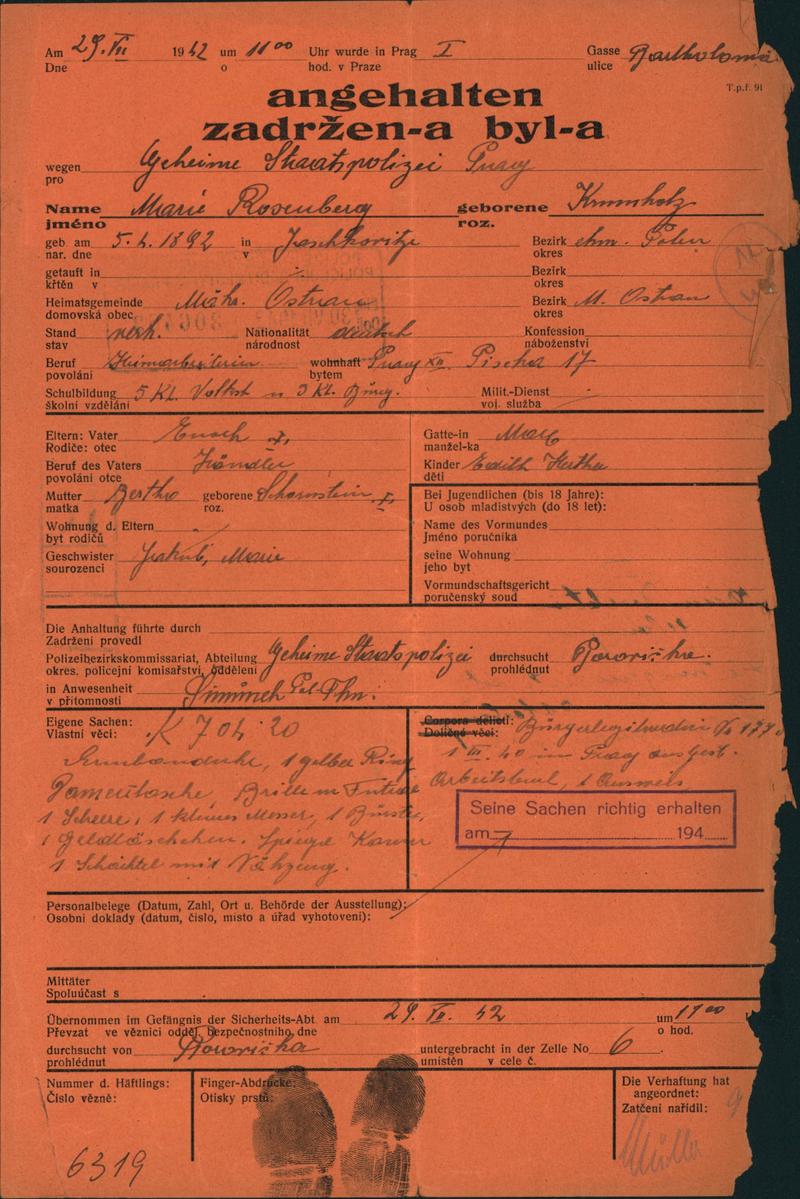 Am 29. VII 1942 um 11⁰⁰ Uhr wurde in Prag I Gasse Bartholomä
Dne o hod. v Praze ulice
T.p.f. 91
angehalten
zadržen-a byl-a
wegen Geheime Staatspolizei Prag
pro
Name Marie Rosenberg geborene Krumholz
jméno roz.
geb. am 5. 4. 1892 in Bezirk ehm. Polen
nar. dne v okres
getauft in Bezirk
křtěn v okres
Heimatsgemeinde Mähr. Ostrau Bezirk M. Ostrau
domovská obec okres
Stand verh. Nationalität deutsch Konfession
stav národnost náboženství
Beruf Heimarbeiterin wohnhaft Prag XII. 17
povolání bytem
Schulbildung 5 Kl. Volkssch u 3 Kl. Bürg. Milit.-Dienst
školní vzdělání voj. služba
Eltern: Vater Enoch Gatte-in
Rodiče: otec manžel-ka
Beruf des Vaters Händler Kinder Edith Hertha
povolání otce děti
Mutter Bertha geborene
matka roz.
Bei Jugendlichen (bis 18 Jahre):
U osob mladistvých (do 18 let):
Wohnung d. Eltern Name des Vormundes
byt rodičů Jméno poručníka
Geschwister Jakub, Marie seine Wohnung
sourozenci jeho byt
Vormundschaftsgericht
poručenský soud
Die Anhaltung führte durch
Zadržení provedl
Polizeibezirkskommissariat, Abteilung Geheime Staatspolizei durchsucht
okres. policejní komisařství, oddělení prohlédnut
in Anwesenheit
v přítomnosti
Eigene Sachen: K 704·20 Corpora delicti: Bürgerlegitimation
Vlastní věci: Doličné věci: 1 III. 40 in Prag ausgest.
Armbanduhr, 1 gelber Ring Arbeitsbuch, 1 Ausweis
Damentasche, Brille m Futteral
1 Scheere, 1 kleines Messer, 1 Bürste,
1 Geldtäschchen. Spiegel Kamm
1 Schachtel mit Nähzeug.
Seine Sachen richtig erhalten
am 194
Personalbelege (Datum, Zahl, Ort u. Behörde der Ausstellung):
Osobní doklady (datum, číslo, místo a úřad vyhotovení):
Mittäter
Spoluúčast s
Übernommen im Gefängnis der Sicherheits-Abt. am 29. VII. 42 um 11⁰⁰
Převzat ve věznici odděl. bezpečnostního, dne o hod.
durchsucht von untergebracht in der Zelle No 6
prohlédnut umístěn v cele č.
Nummer d. Häftlings: Finger-Abdrücke: Die Verhaftung hat
Číslo vězně: Otisky prstů: angeordnet:
Zatčení nařídil:
6319 Müller